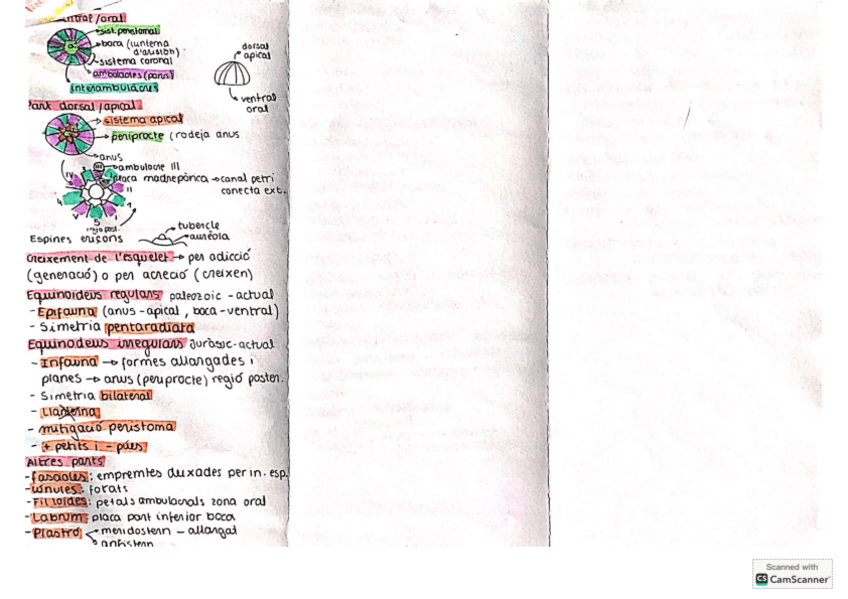 ntral/oral
sist. peristomal
boca (llinterna
d'aristòt)
sistema coronal
ambulacres (parus)
interambulacres
dorsal
apical
ventral
oral
Part dorsal/apical
sistema apical
periprocte (rodeja anus
anus
ambulacre III
placa madrepòrica → canal petri
conecta ext.
IV
II
V
I
5
regió post.
Espines eriçons
tubercle
aureola
creixement de l'esquelet → per adicció
(generació) o per acreció (creixen)
Equinoideus regulars paleozoic - actual
- Epifauna (anus - apical, boca - ventral)
- Simetria pentaradiata
Equinodeus irregulars Juràssic - actual
- Infauna → formes allargades i
planes → anus (periprocte) regió poster.
- Simetria bilateral
- Llanterna
- mitigació peristoma
- + petits i - púes
Altres parts
- fascioles: empremtes deixades per in. esp.
- Lúnules: forats
- Fil·loides: petals ambulacrals zona oral
- Labrum: placa part inferior boca
- Plastró
meridostern - allargat
anfistern